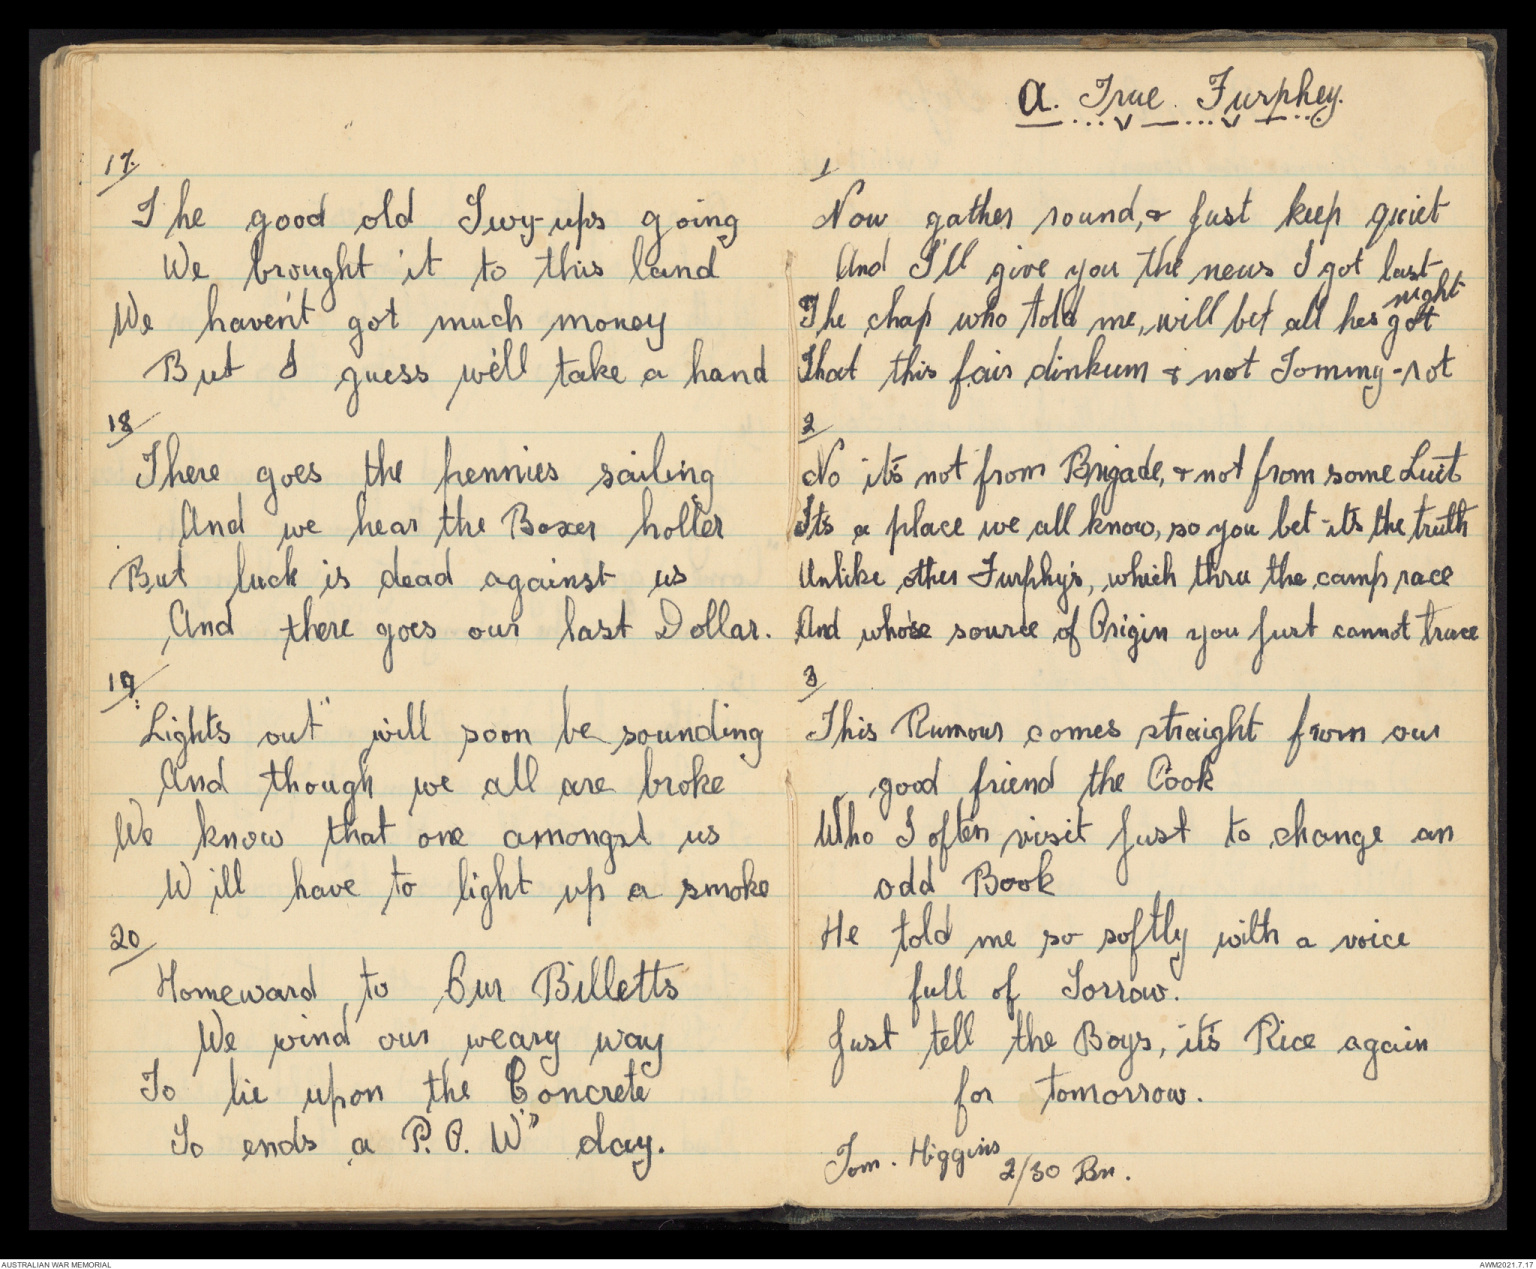 17.
The good old Swy-ups going
We brought it to this land
We haven't got much money
But I guess we'll take a hand
18
There goes the pennies sailing
And we hear the Boxer holler
But luck is dead against us
And there goes our last Dollar.
19
"Lights out" will soon be sounding
And though we all are broke
We know that one amongst us
Will have to light up a smoke
20
Homeward to Our Billetts
We wind our weary way
To lie upon the Concrete
So ends a P.O.W's day.
A. True. Furphey.
1
Now gather round, & just keep quiet
And I'll give you the news I got last night
The chap who told me, will bet all hes got
That this fair dinkum & not Tommy-rot
2
No it's not from Brigade, & not from some Luit
It's a place we all know, so you bet it's the truth
Unlike other Furphy's, which thru the camp race
And whose source of Origin you just cannot trace
3
This Rumour comes straight from our
good friend the Cook
Who I often visit just to change an
odd Book
He told me so softly with a voice
full of Sorrow.
Just tell the Boys, it's Rice again
for tomorrow.
Tom. Higgins
2/30 Bn.
AUSTRALIAN WAR MEMORIAL
AWM2021.7.17